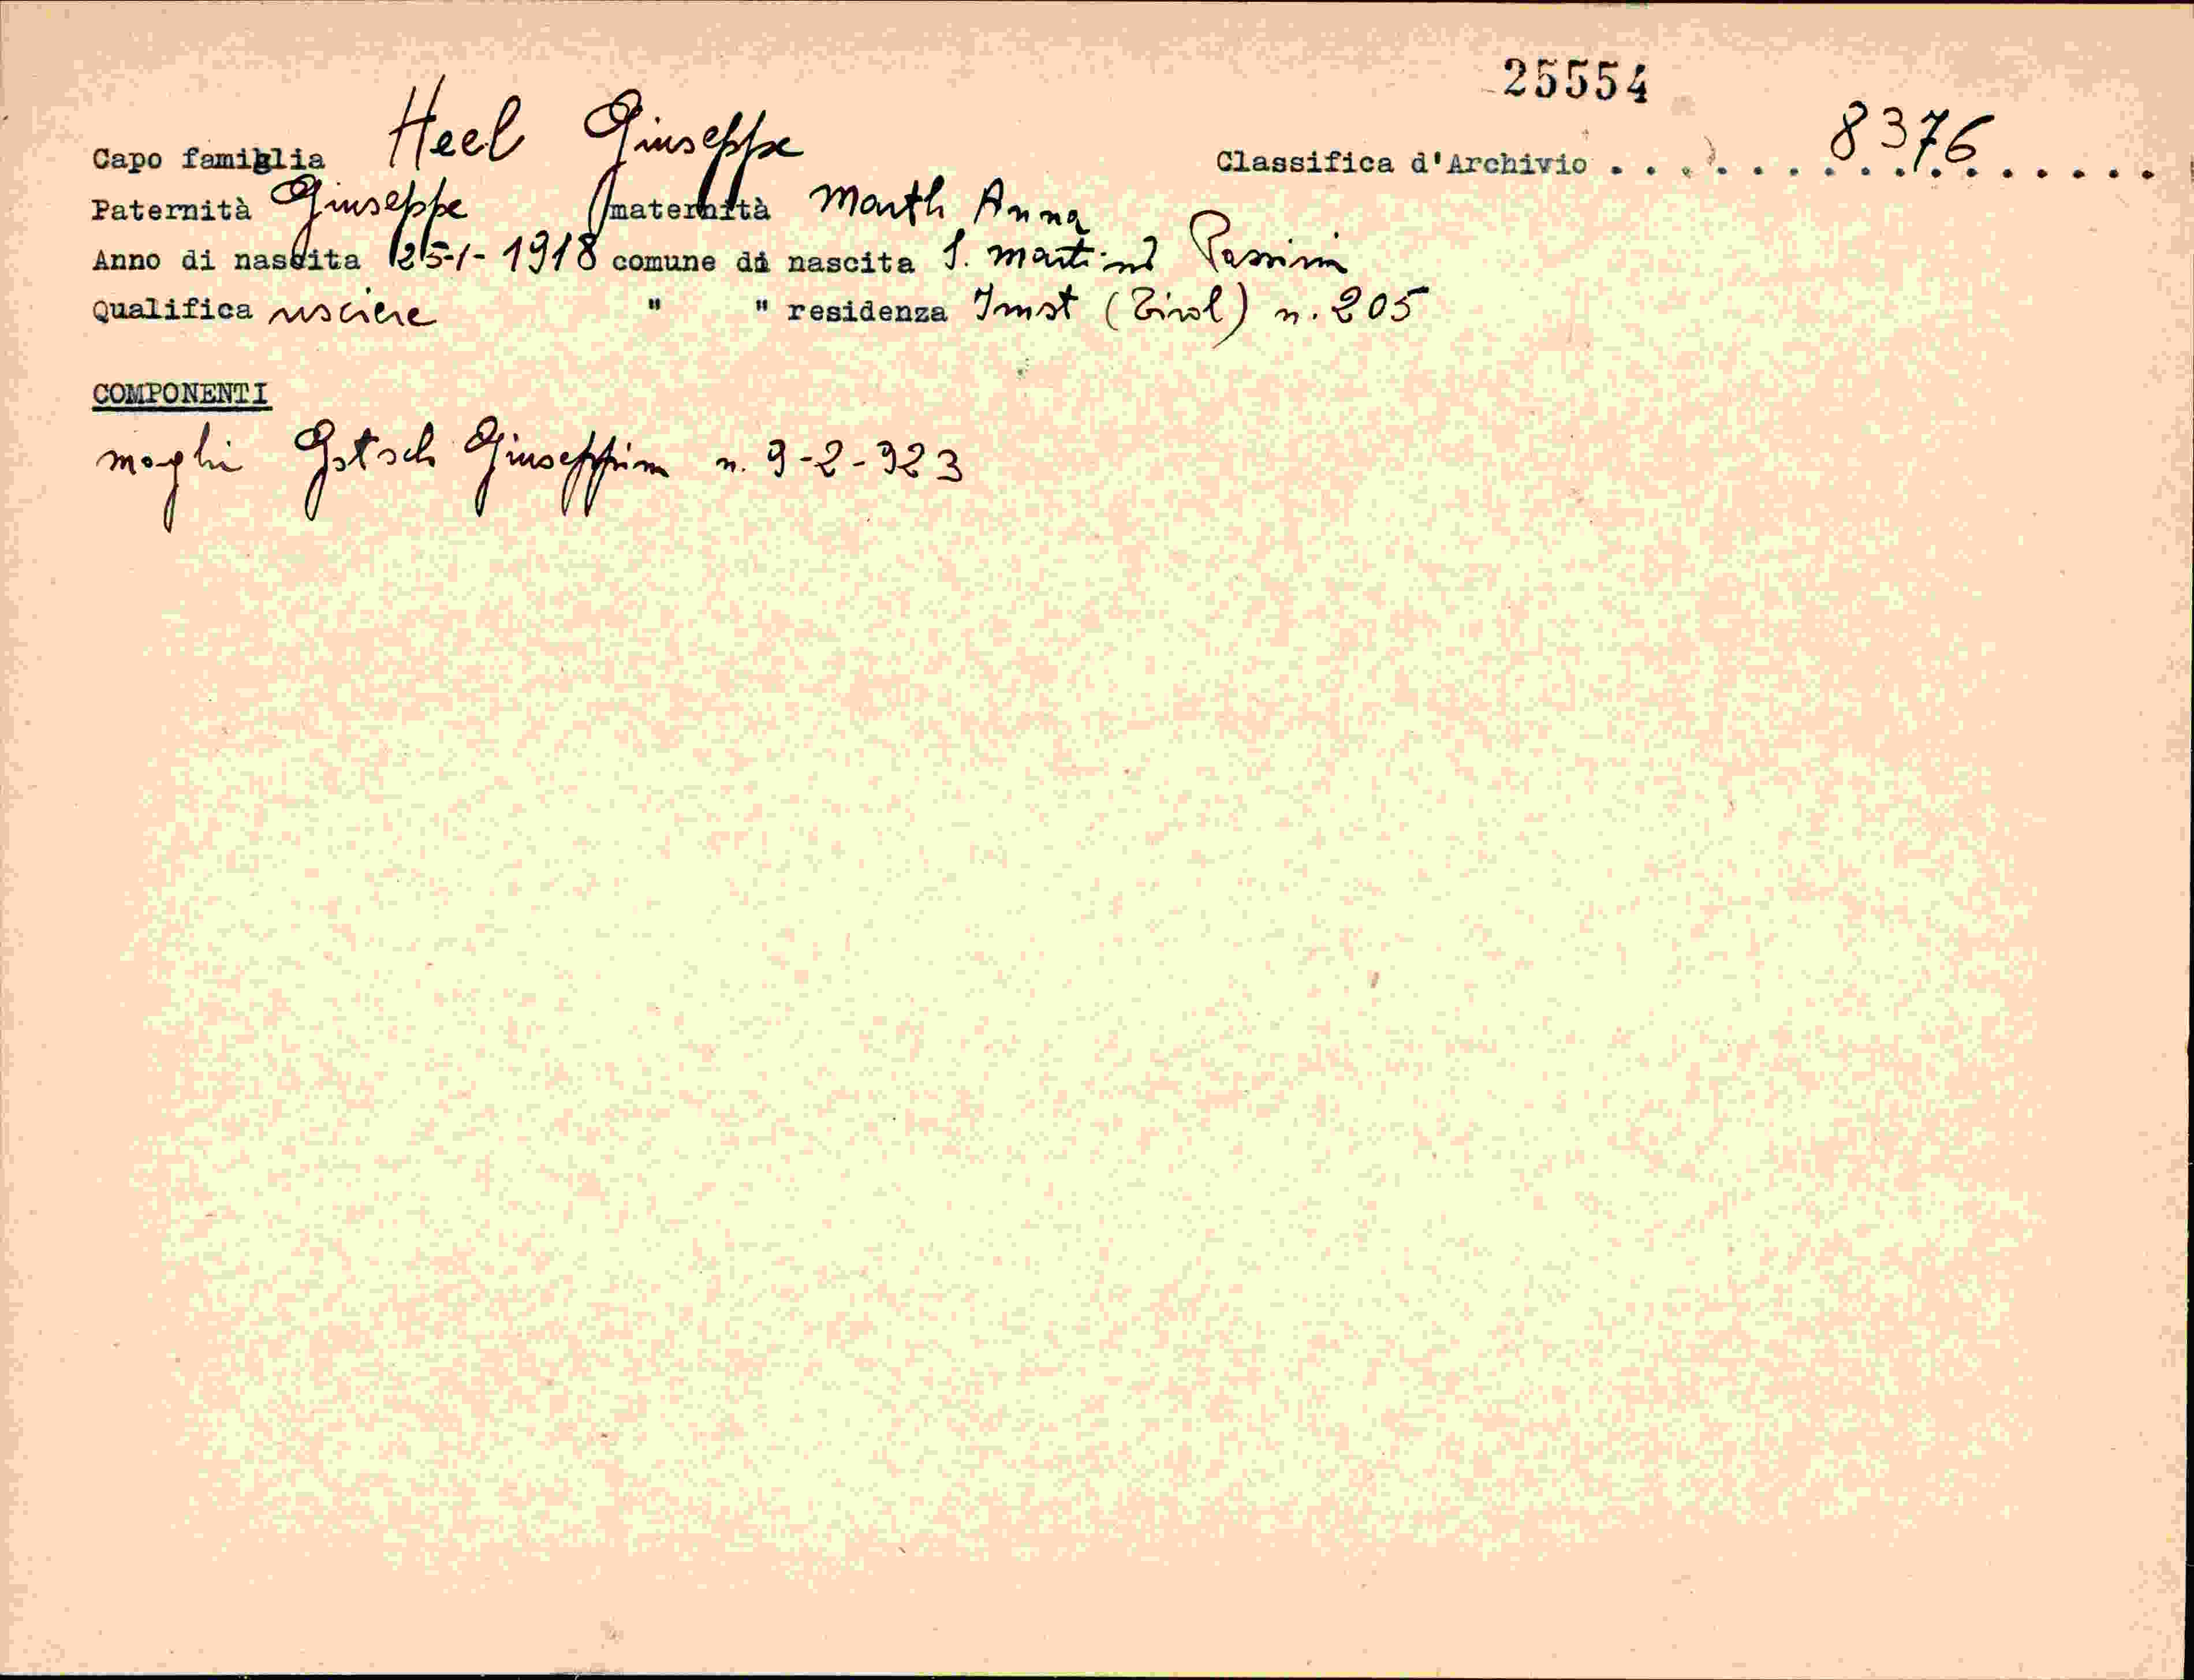 25554
Capo famiglia Heel Giuseppe Classifica d'Archivio . . . . . . 8376 . . . . .
Paternità Giuseppe maternità Marth Anna
Anno di nascita 25-1-1918 comune di nascita S. Martino Passiria
Qualifica usciere " " residenza Imst (Tirol) n. 205
COMPONENTI
moglie Gstsch Giuseppina n. 9-2-923